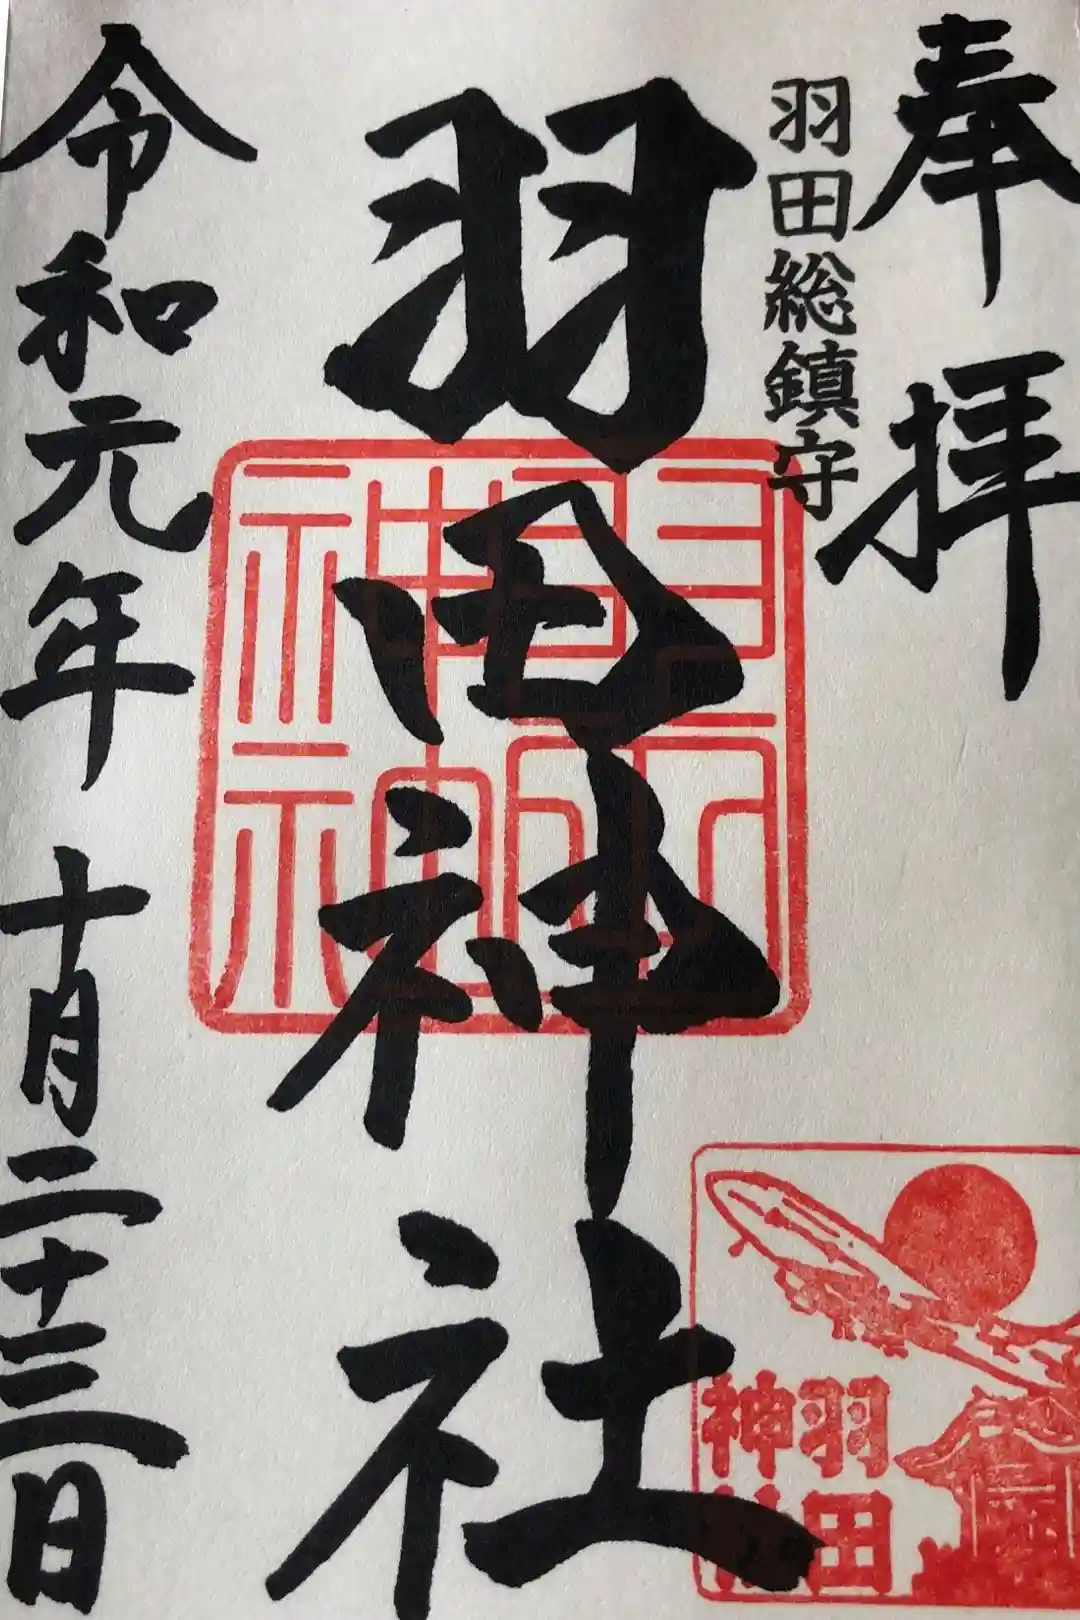 奉拝
羽田総鎮守
羽田神社
令和元年十月二十三日
羽田神社
羽田
神社